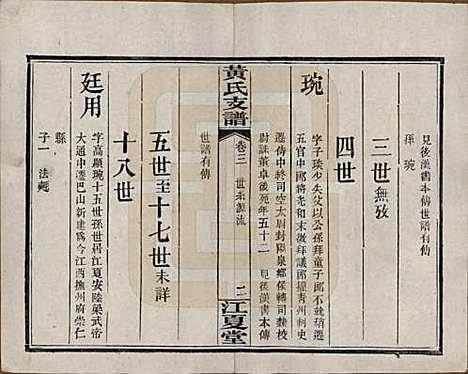 見後漢書本傳世譜有傳
孫琬
三世無攷
四世
琬
字子琰少失父以公孫拜童子郎不就稍遷
五官中郎將光和末徵拜議郎擢青州刺史
遷侍中終司空太尉封陽泉鄉侯轉司隸校
尉誅董卓後死年五十二 見後漢書本傳
世譜有傳
黃氏支譜
卷三 世系源流
二
江夏堂
五世至十七世未詳
十八世
廷用
字高顯琬十五世孫世居江夏安陸梁武帝
大通中遷巴山新建為今江西撫州府崇仁
縣
子一 法𣰰